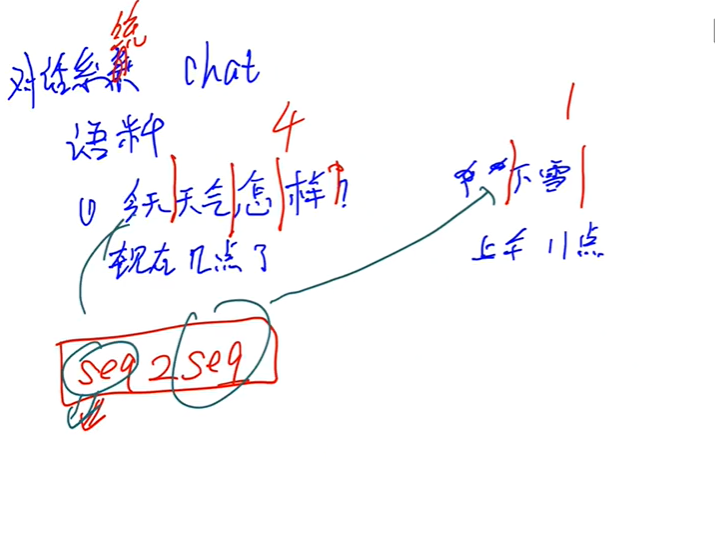 对话系统 chat
语料 4 1
(1) 今天天气怎样? 下雪
现在几点了 上午 11点
seq 2 seq